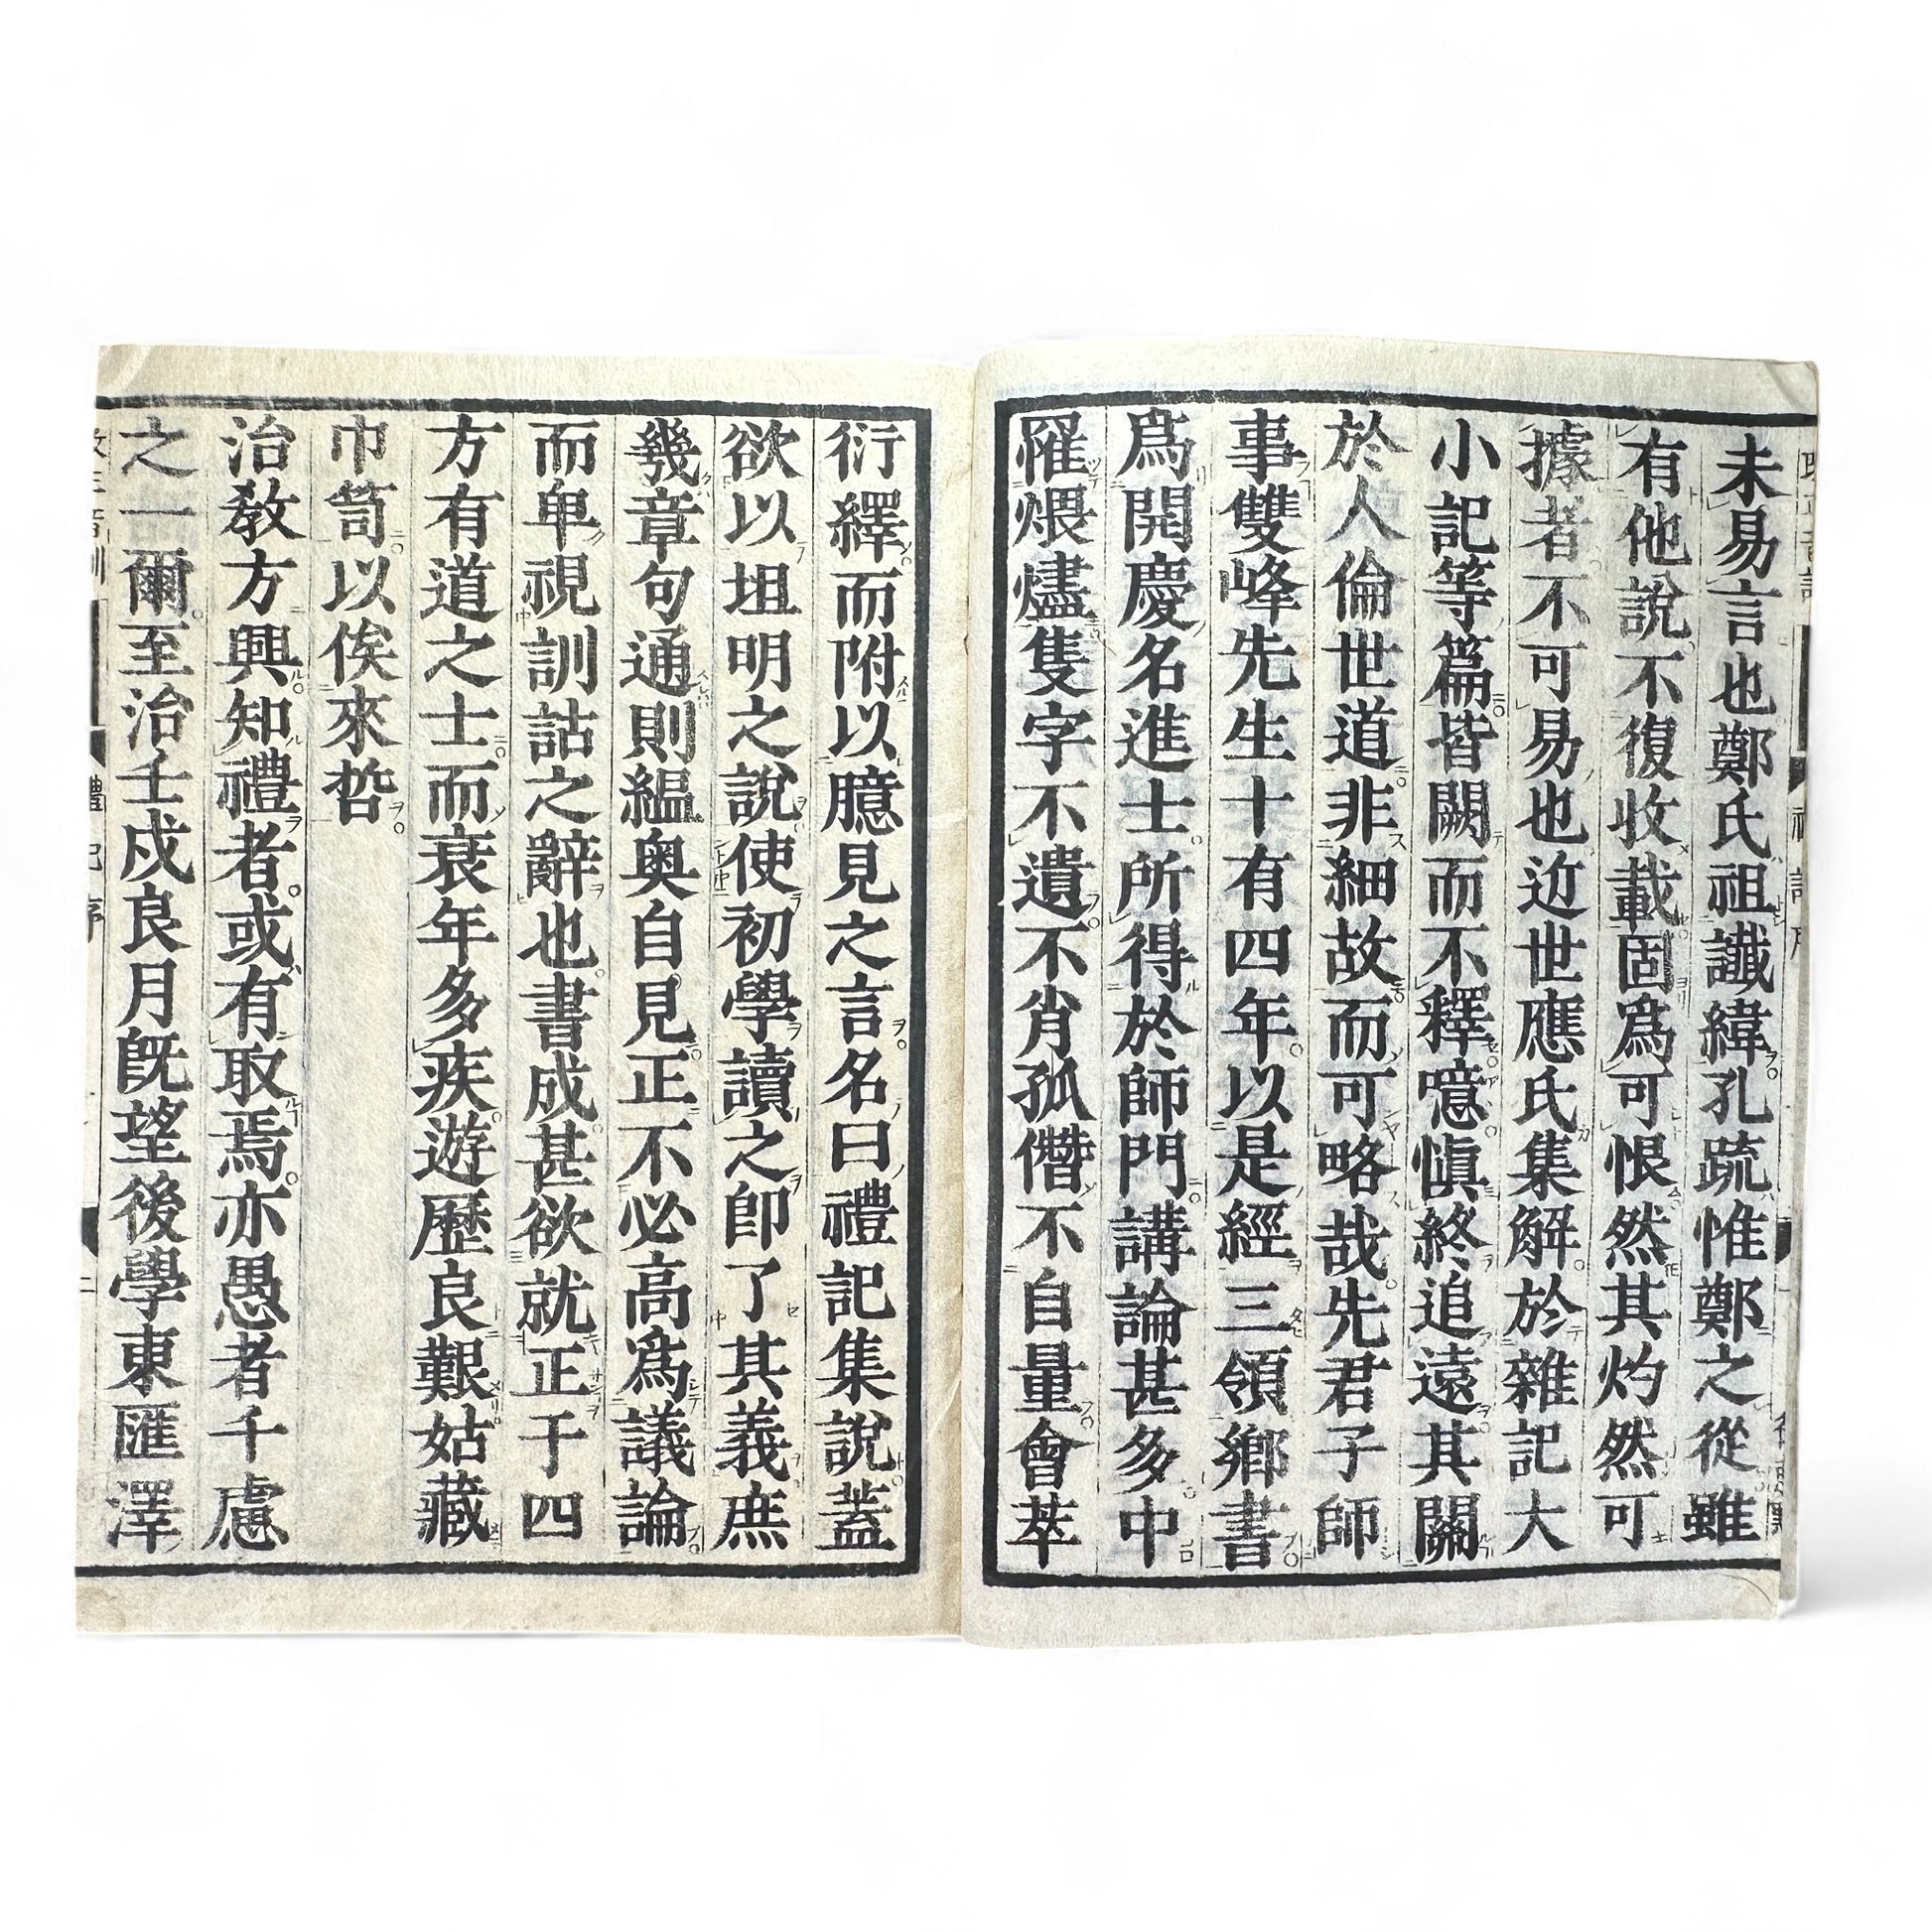 未易言也鄭氏祖讖緯孔疏惟鄭之從雖
有他說不復收載固爲可恨然其灼然可
據者不可易也近世應氏集解於雜記大
小記等篇皆闕而不釋噫愼終追遠其關
於人倫世道非細故而可略哉先君子師
事雙峰先生十有四年以是經三領鄉書
爲開慶名進士所得於師門講論甚多中
罹煨燼隻字不遺不肖孤僭不自量會萃
衍繹而附以臆見之言名曰禮記集說蓋
欲以坦明之說使初學讀之卽了其義庶
幾章句通則緼奧自見正不必高爲議論
而卑視訓詁之辭也書成甚欲就正于四
方有道之士而衰年多疾遊歷良艱姑藏
巾笥以俟來哲
治敎方興知禮者或有取焉亦愚者千慮
之一爾至治壬戌良月旣望後學東匯澤
禮記序
二